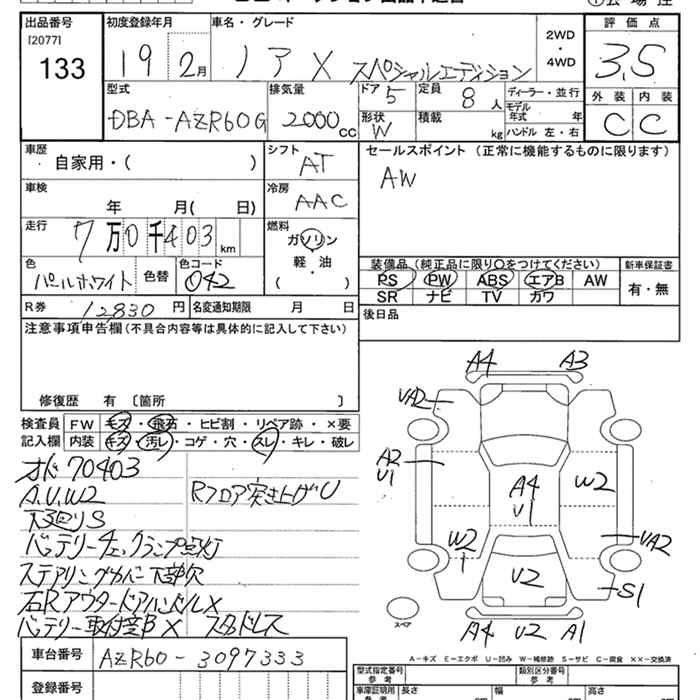 出品番号 初度登録年月 車名・グレード 2WD・4WD 評価点
[2077]
133 19 2月 ノア X スペシャルエディション 3.5
型式 排気量 ドア 定員 ディーラー・並行 外装 内装
DBA-AZR60G 2000cc 5 8人 モデル年式 年 C C
形状 W 積載 kg ハンドル 左・右
車歴 シフト セールスポイント (正常に機能するものに限ります)
自家用・( ) AT AW
車検 冷房
年 月( 日) AAC
走行 燃料
7万0千403km ガソリン
軽・油
( )
色 色替 色コード 装備品 (純正品に限り○をつけてください) 新車保証書
パールホワイト 042 PS PW ABS エアB AW 有・無
SR ナビ TV カワ
R券 12830円 名変通知期限 月 日 後日品
注意事項申告欄(不具合内容等は具体的に記入して下さい)
修復歴 有 〔箇所 〕
検査員 FW キズ・飛石・ヒビ割・リペア跡・×要
記入欄 内装 キズ・汚レ・コゲ・穴・スレ・キレ・破レ
オド70403
A.U.W2 Rフロア突き上げU
下廻りS
バッテリーチェックランプ点灯
ステアリングカバー下部欠
右Rアウタードアハンドル×
バッテリー取付部× スタッドレス
A4 A3
UA2
A2 U1
A4 U1
W2
W2
UA2
U2
S1
スペア
A4 U2 A1
A-キズ E-エクボ U-凹み W-補修跡 S-サビ C-腐食 ××-交換済
車台番号 AZR60-3097333
型式指定番号 参考 類別区分番号 参考
登録番号
車庫証明用 長さ 幅 高さ